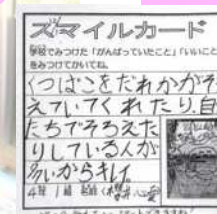 スマイルカード
学校でみつけた「がんばっていたこと」「いいこと
をみつけてかいてね。
くつばこをだれかがそ
えていてくれたり、自
たちでそろえた
りしている人が
多いからきれ
4年 1組